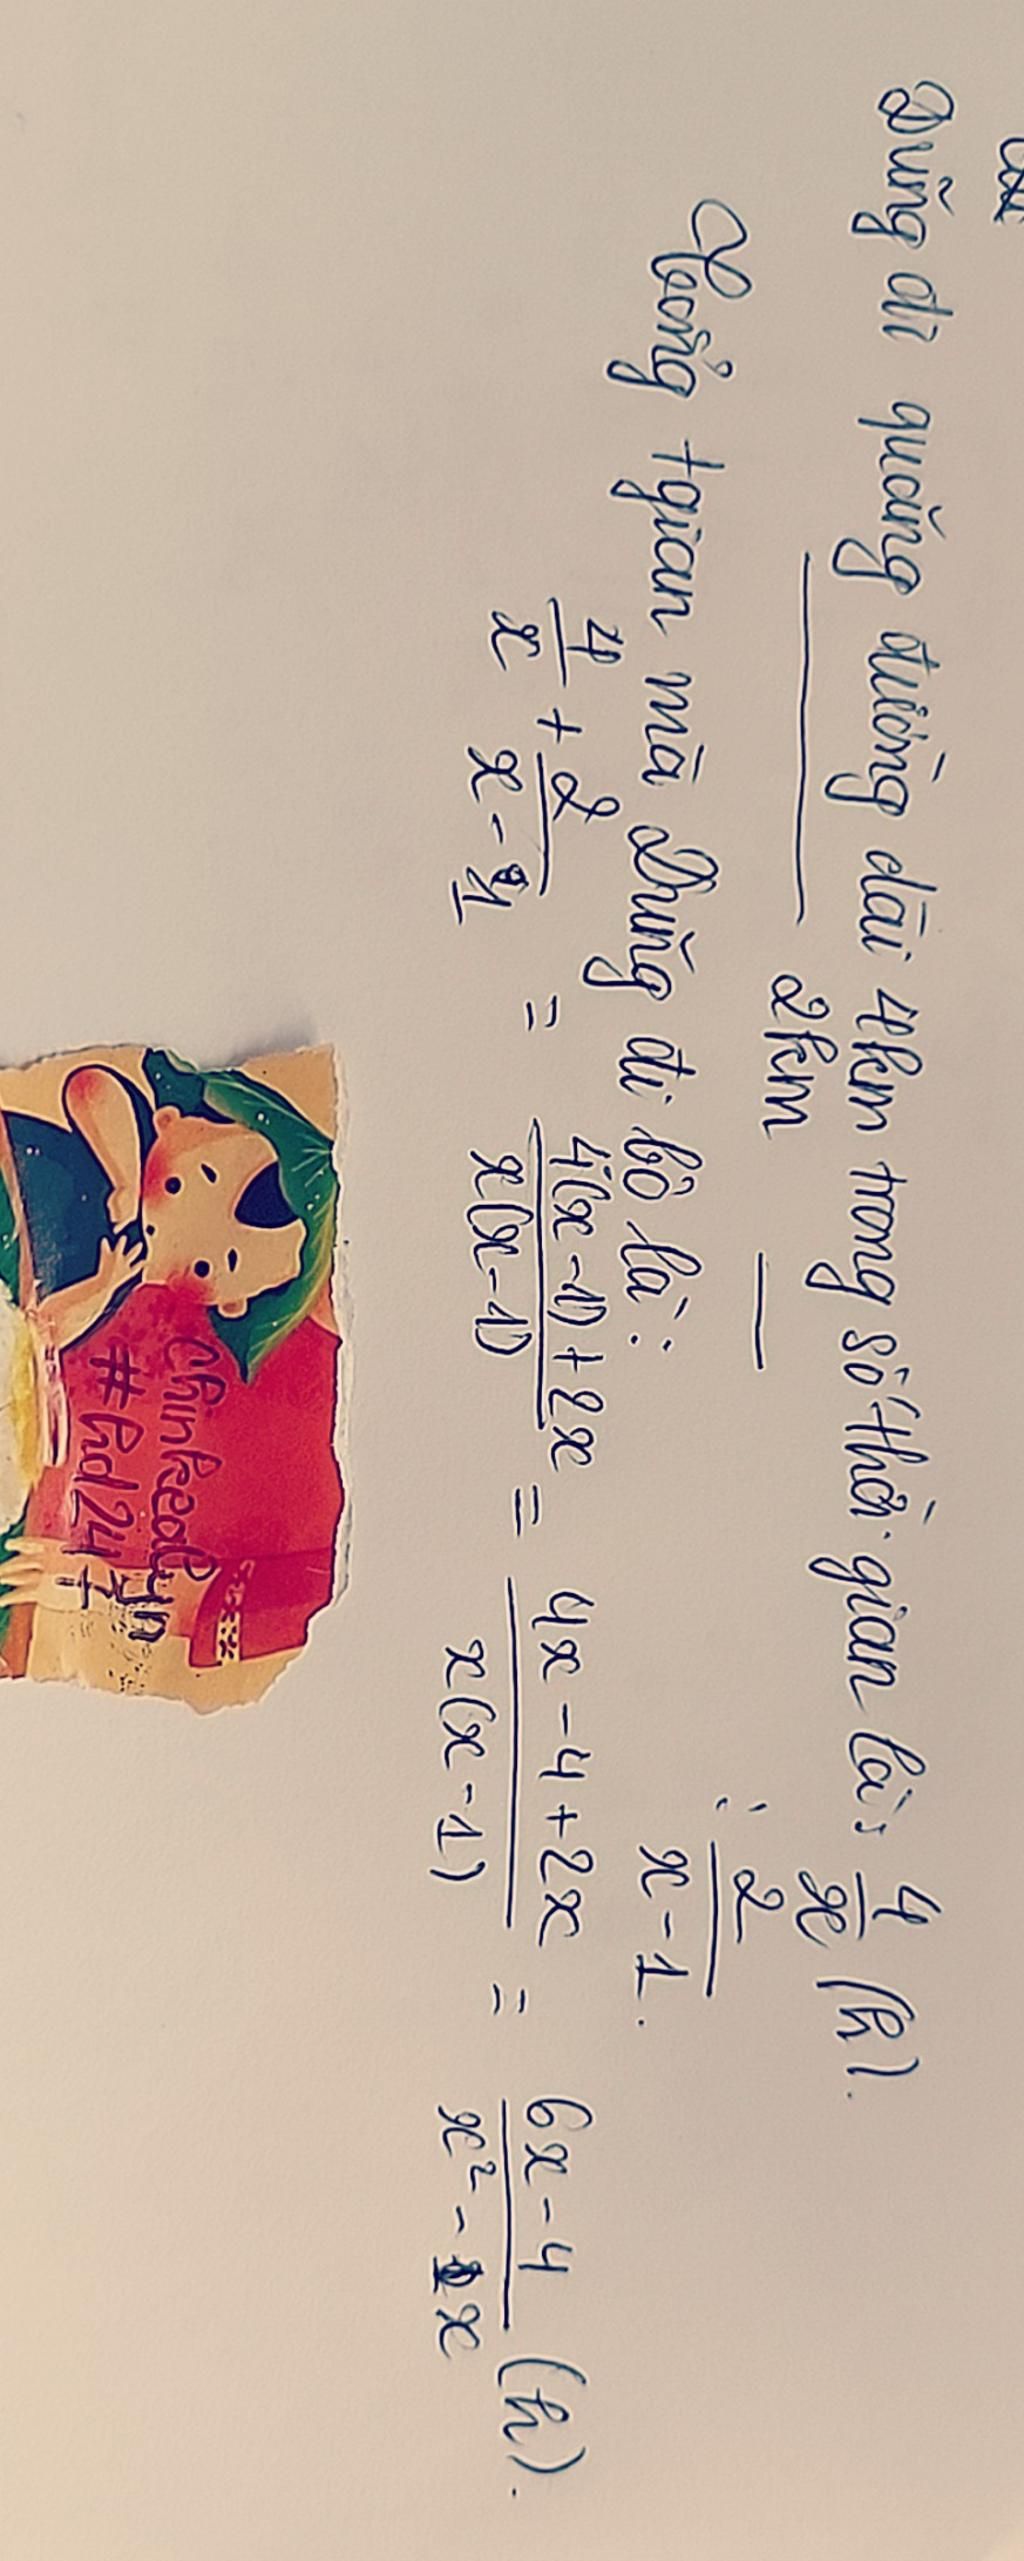 Dũng đi quãng đường dài 4km trong số thời gian là: 4/x (h).
2km : 2/(x-1).
Tổng tgian mà Dũng đi bộ là:
4/x + 2/(x-1) = (4(x-1)+2x)/(x(x-1)) = (4x-4+2x)/(x(x-1)) = (6x-4)/(x²-x) (h).
chinsadyn
#hd247